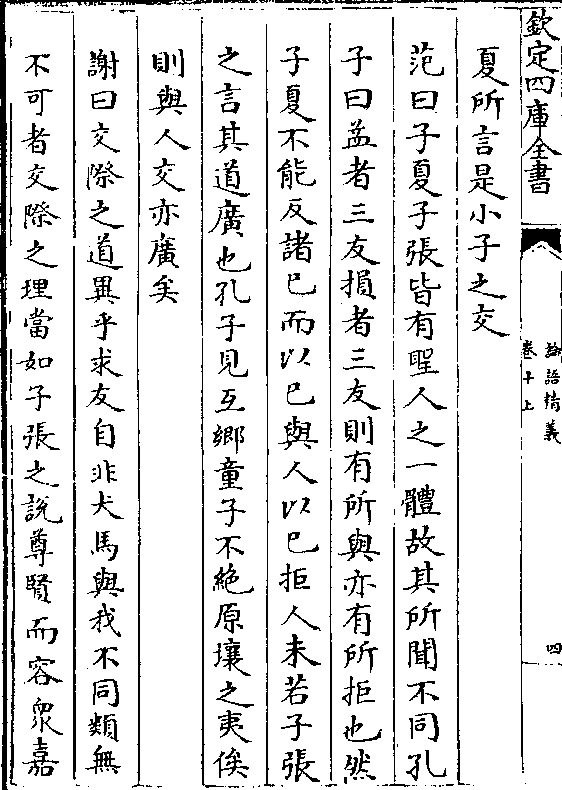 欽定四庫全書
論語精義
卷十上
四
夏所言是小子之交
范曰子夏子張皆有聖人之一體故其所聞不同孔
子曰益者三友損者三友則有所與亦有所拒也然
子夏不能反諸已而以已與人以已拒人未若子張
之言其道廣也孔子見互鄉童子不絶原壤之夷俟
則與人交亦廣矣
謝曰交際之道異乎求友自非犬馬與我不同類無
不可者交際之理當如子張之說尊賢而容衆嘉